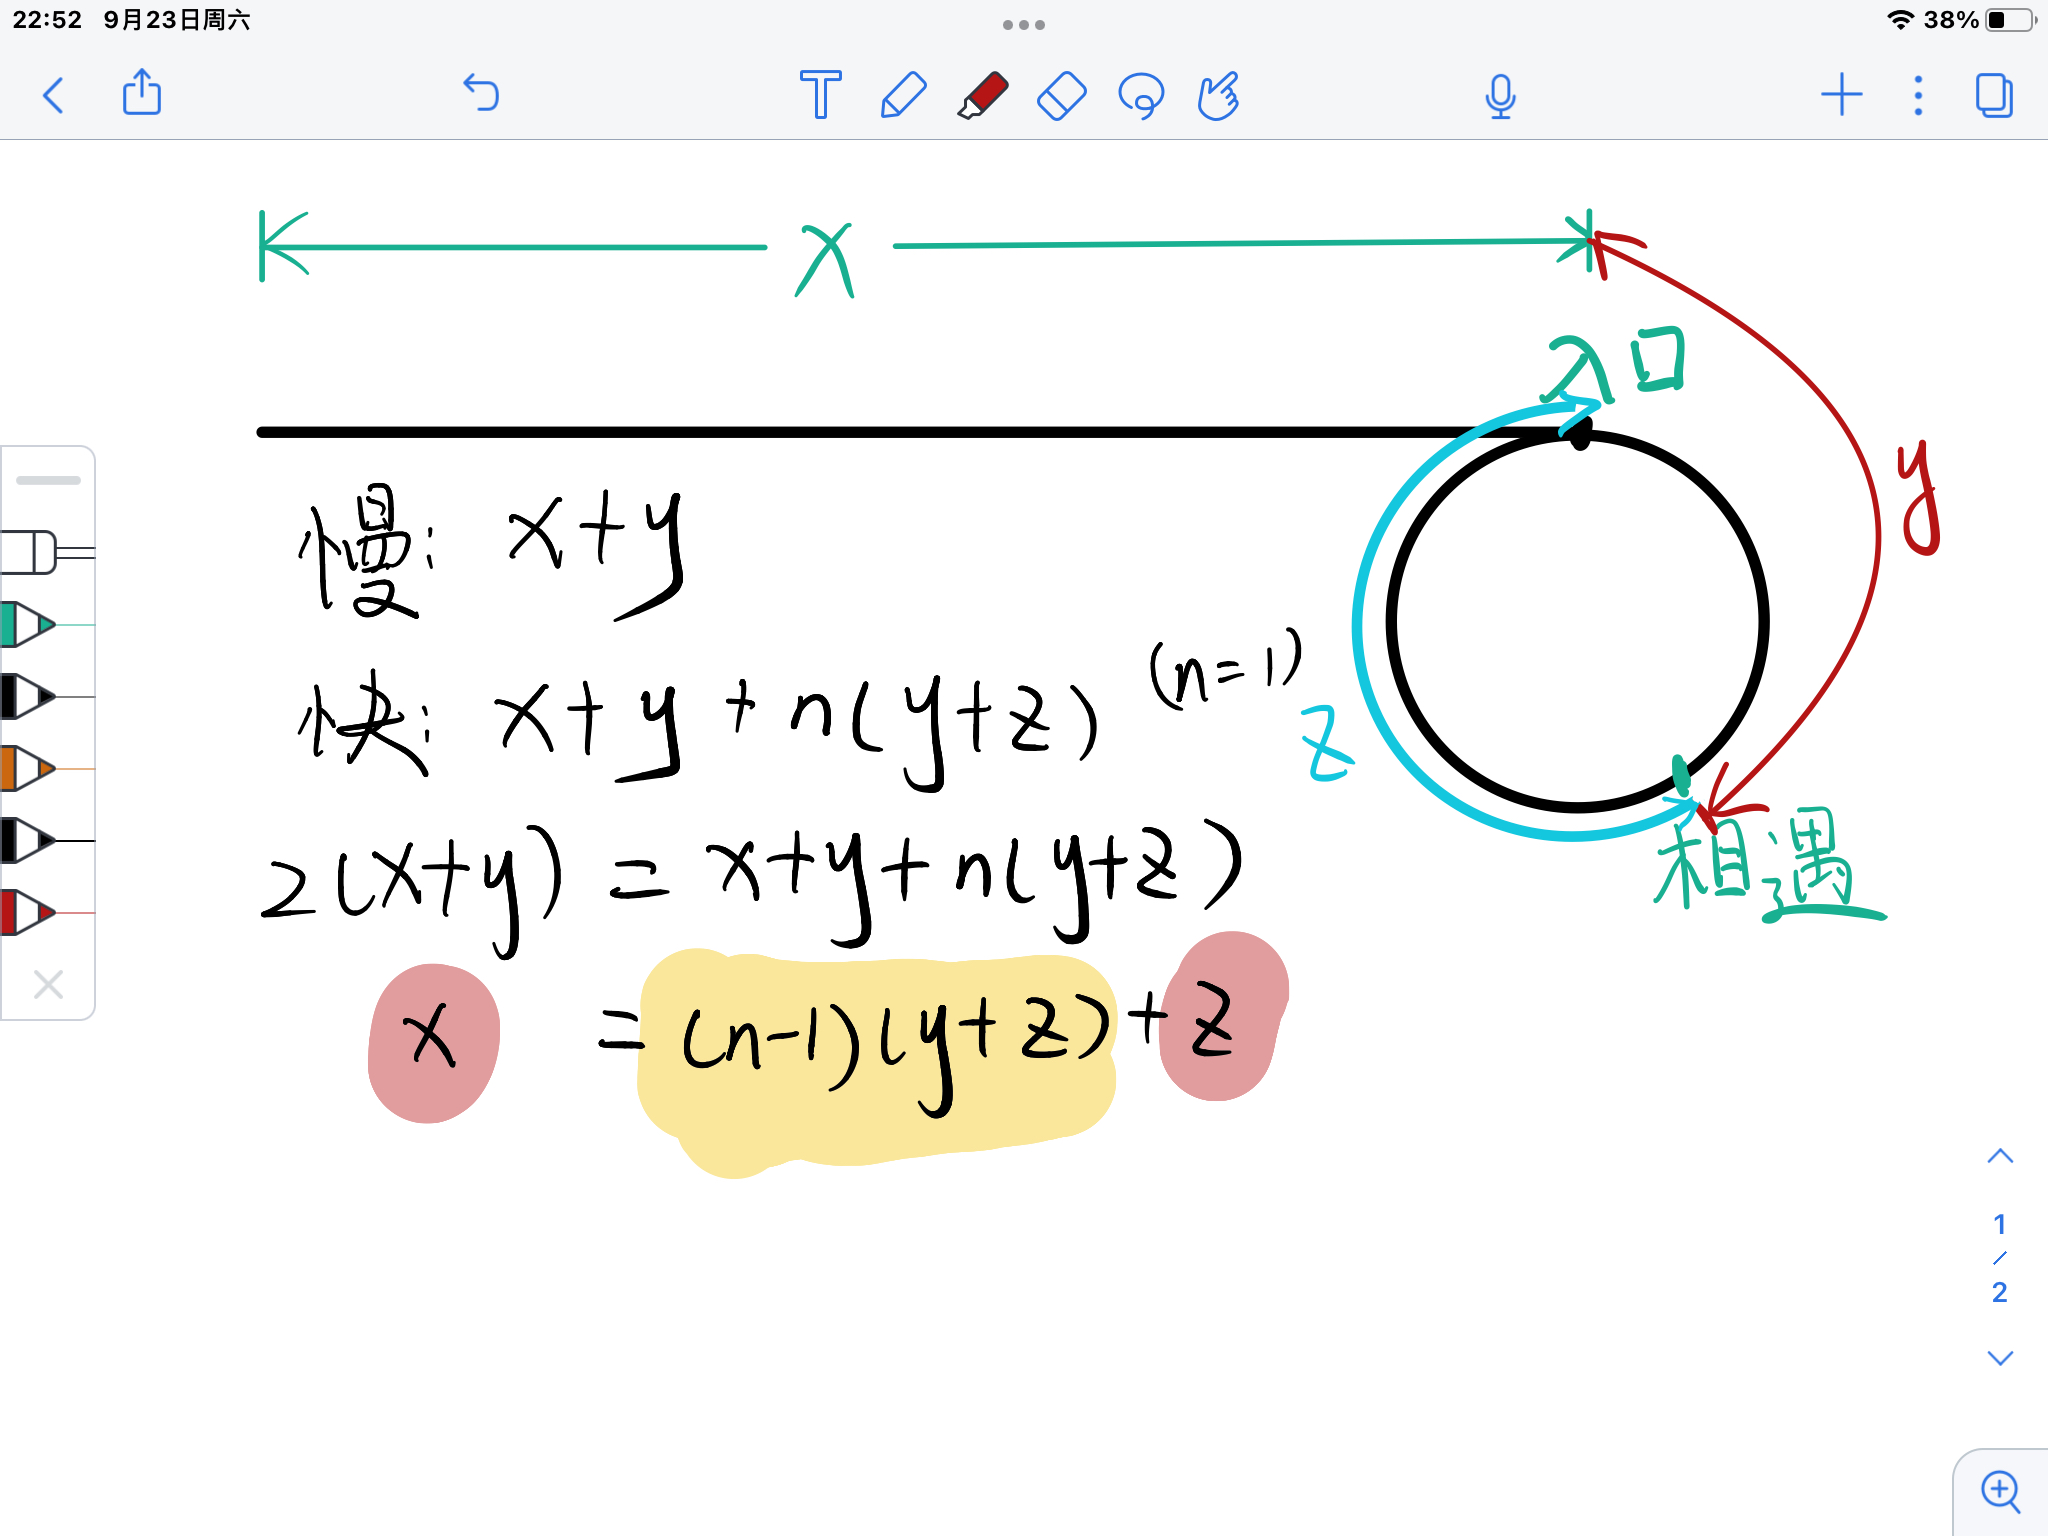 22:52 9月23日周六
38%
T
x
入口
y
慢: x+y
快: x+y+n(y+z) (n=1)
z
2(x+y) = x+y+n(y+z)
相遇
x = (n-1)(y+z)+z
1
/
2